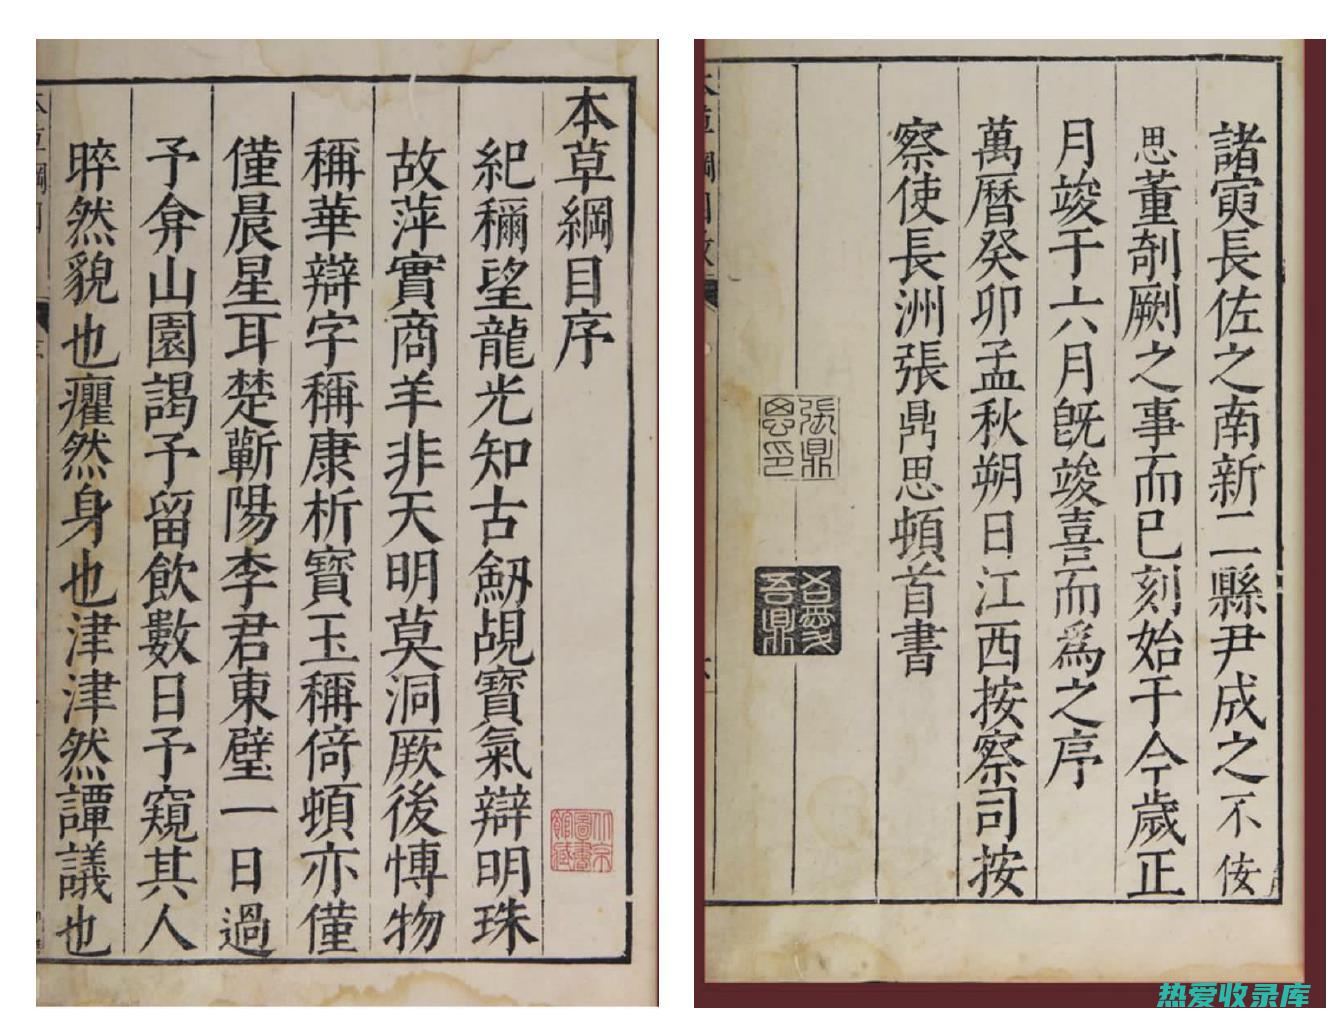 本草綱目序
紀穪望龍光知古劒覘寶氣辯明珠
故萍實商羊非天明莫洞厥後愽物
稱華辯字稱康析寳玉稱倚頓亦僅
僅晨星耳楚蘄陽李君東璧一日過
予弇山園謁予留飲數日予窺其人
睟然貌也癯然身也津津然譚議也
北京圖書館藏
諸寅長佐之南新二縣尹成之不佞
思董剞劂之事而已刻始于今歲正
月竣于六月旣竣喜而爲之序
萬曆癸卯孟秋朔日江西按察司按
察使長洲張鼎思頓首書
張鼎思印
热爱收录库